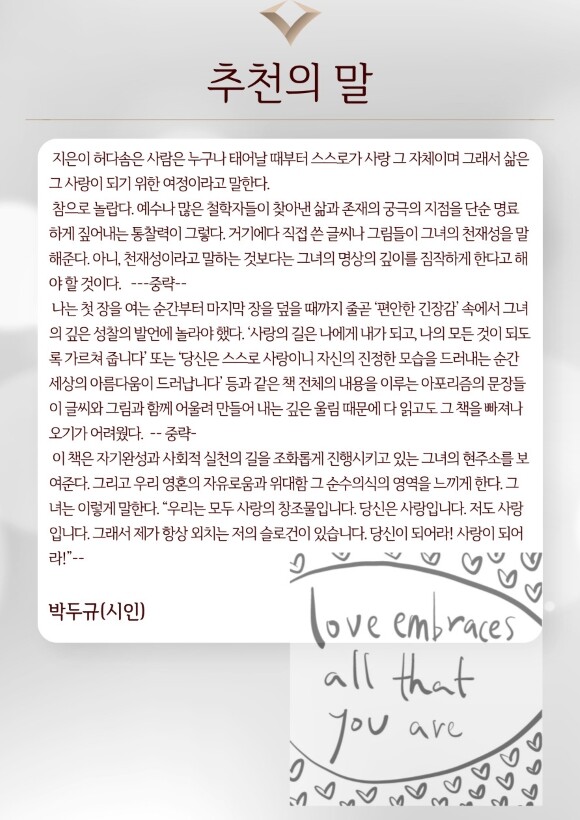 추천의 말
지은이 허다솜은 사람은 누구나 태어날 때부터 스스로가 사랑 그 자체이며 그래서 삶은
그 사랑이 되기 위한 여정이라고 말한다.
참으로 놀랍다. 예수나 많은 철학자들이 찾아낸 삶과 존재의 궁극의 지점을 단순 명료
하게 짚어내는 통찰력이 그렇다. 거기에다 직접 쓴 글씨나 그림들이 그녀의 천재성을 말
해준다. 아니, 천재성이라고 말하는 것보다는 그녀의 명상의 깊이를 짐작하게 한다고 해
야 할 것이다. ---중략--
나는 첫 장을 여는 순간부터 마지막 장을 덮을 때까지 줄곧 ‘편안한 긴장감’ 속에서 그녀
의 깊은 성찰의 발언에 놀라야 했다. ‘사랑의 길은 나에게 내가 되고, 나의 모든 것이 되도
록 가르쳐 줍니다’ 또는 ‘당신은 스스로 사랑이니 자신의 진정한 모습을 드러내는 순간
세상의 아름다움이 드러납니다’ 등과 같은 책 전체의 내용을 이루는 아포리즘의 문장들
이 글씨와 그림과 함께 어울려 만들어 내는 깊은 울림 때문에 다 읽고도 그 책을 빠져나
오기가 어려웠다. -- 중략-
이 책은 자기완성과 사회적 실천의 길을 조화롭게 진행시키고 있는 그녀의 현주소를 보
여준다. 그리고 우리 영혼의 자유로움과 위대함 그 순수의식의 영역을 느끼게 한다. 그
녀는 이렇게 말한다. “우리는 모두 사랑의 창조물입니다. 당신은 사랑입니다. 저도 사랑
입니다. 그래서 제가 항상 외치는 저의 슬로건이 있습니다. 당신이 되어라! 사랑이 되어
라!”--
박두규(시인)
love embraces
all that
you are